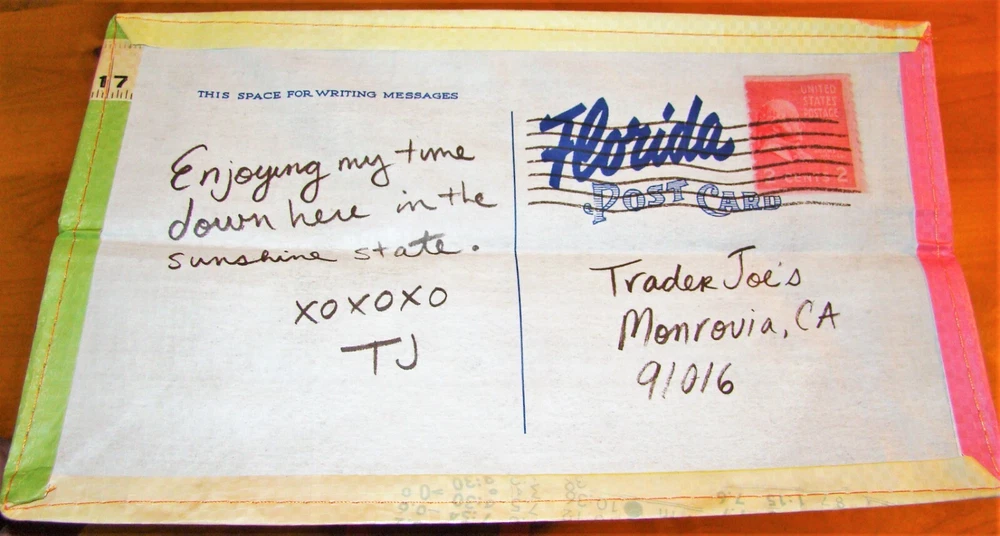 17
THIS SPACE FOR WRITING MESSAGES
Enjoying my time
down here in the
sunshine state.
XOXOXO
TJ
Florida
POST CARD
UNITED
STATES
POSTAGE
2 2
Trader Joe's
Monrovia, CA
91016